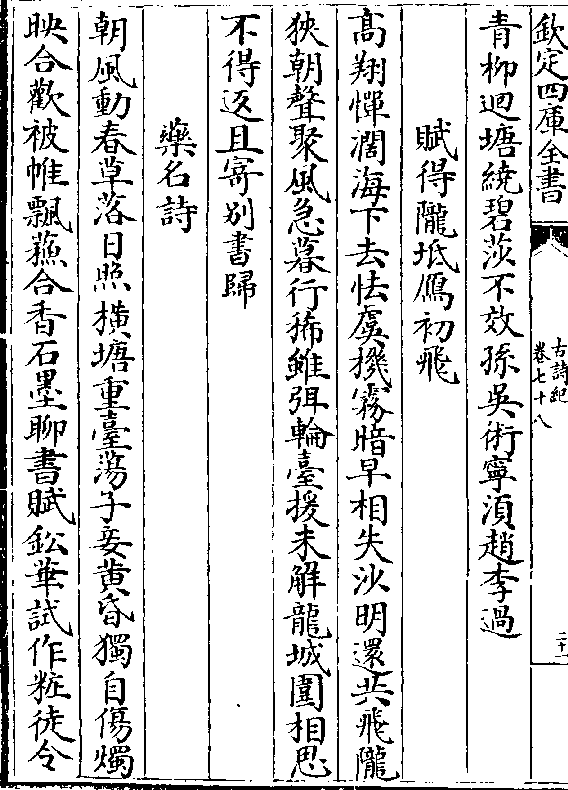 欽定四庫全書
古詩紀
卷七十八
二十一
青柳迴塘繞碧莎不效孫吳術寧湏趙李過
賦得隴坻鴈初飛
高翔憚濶海下去怯虞機霧暗早相失沙明還共飛隴
狹朝聲聚風急暮行稀雖弭輪臺援未解龍城圍相思
不得返且寄别書歸
藥名詩
朝風動春草落日照横塘重臺蕩子妾黄昏獨自傷燭
映合歡被帷飄蘇合香石墨聊書賦鈆華試作粧徒令